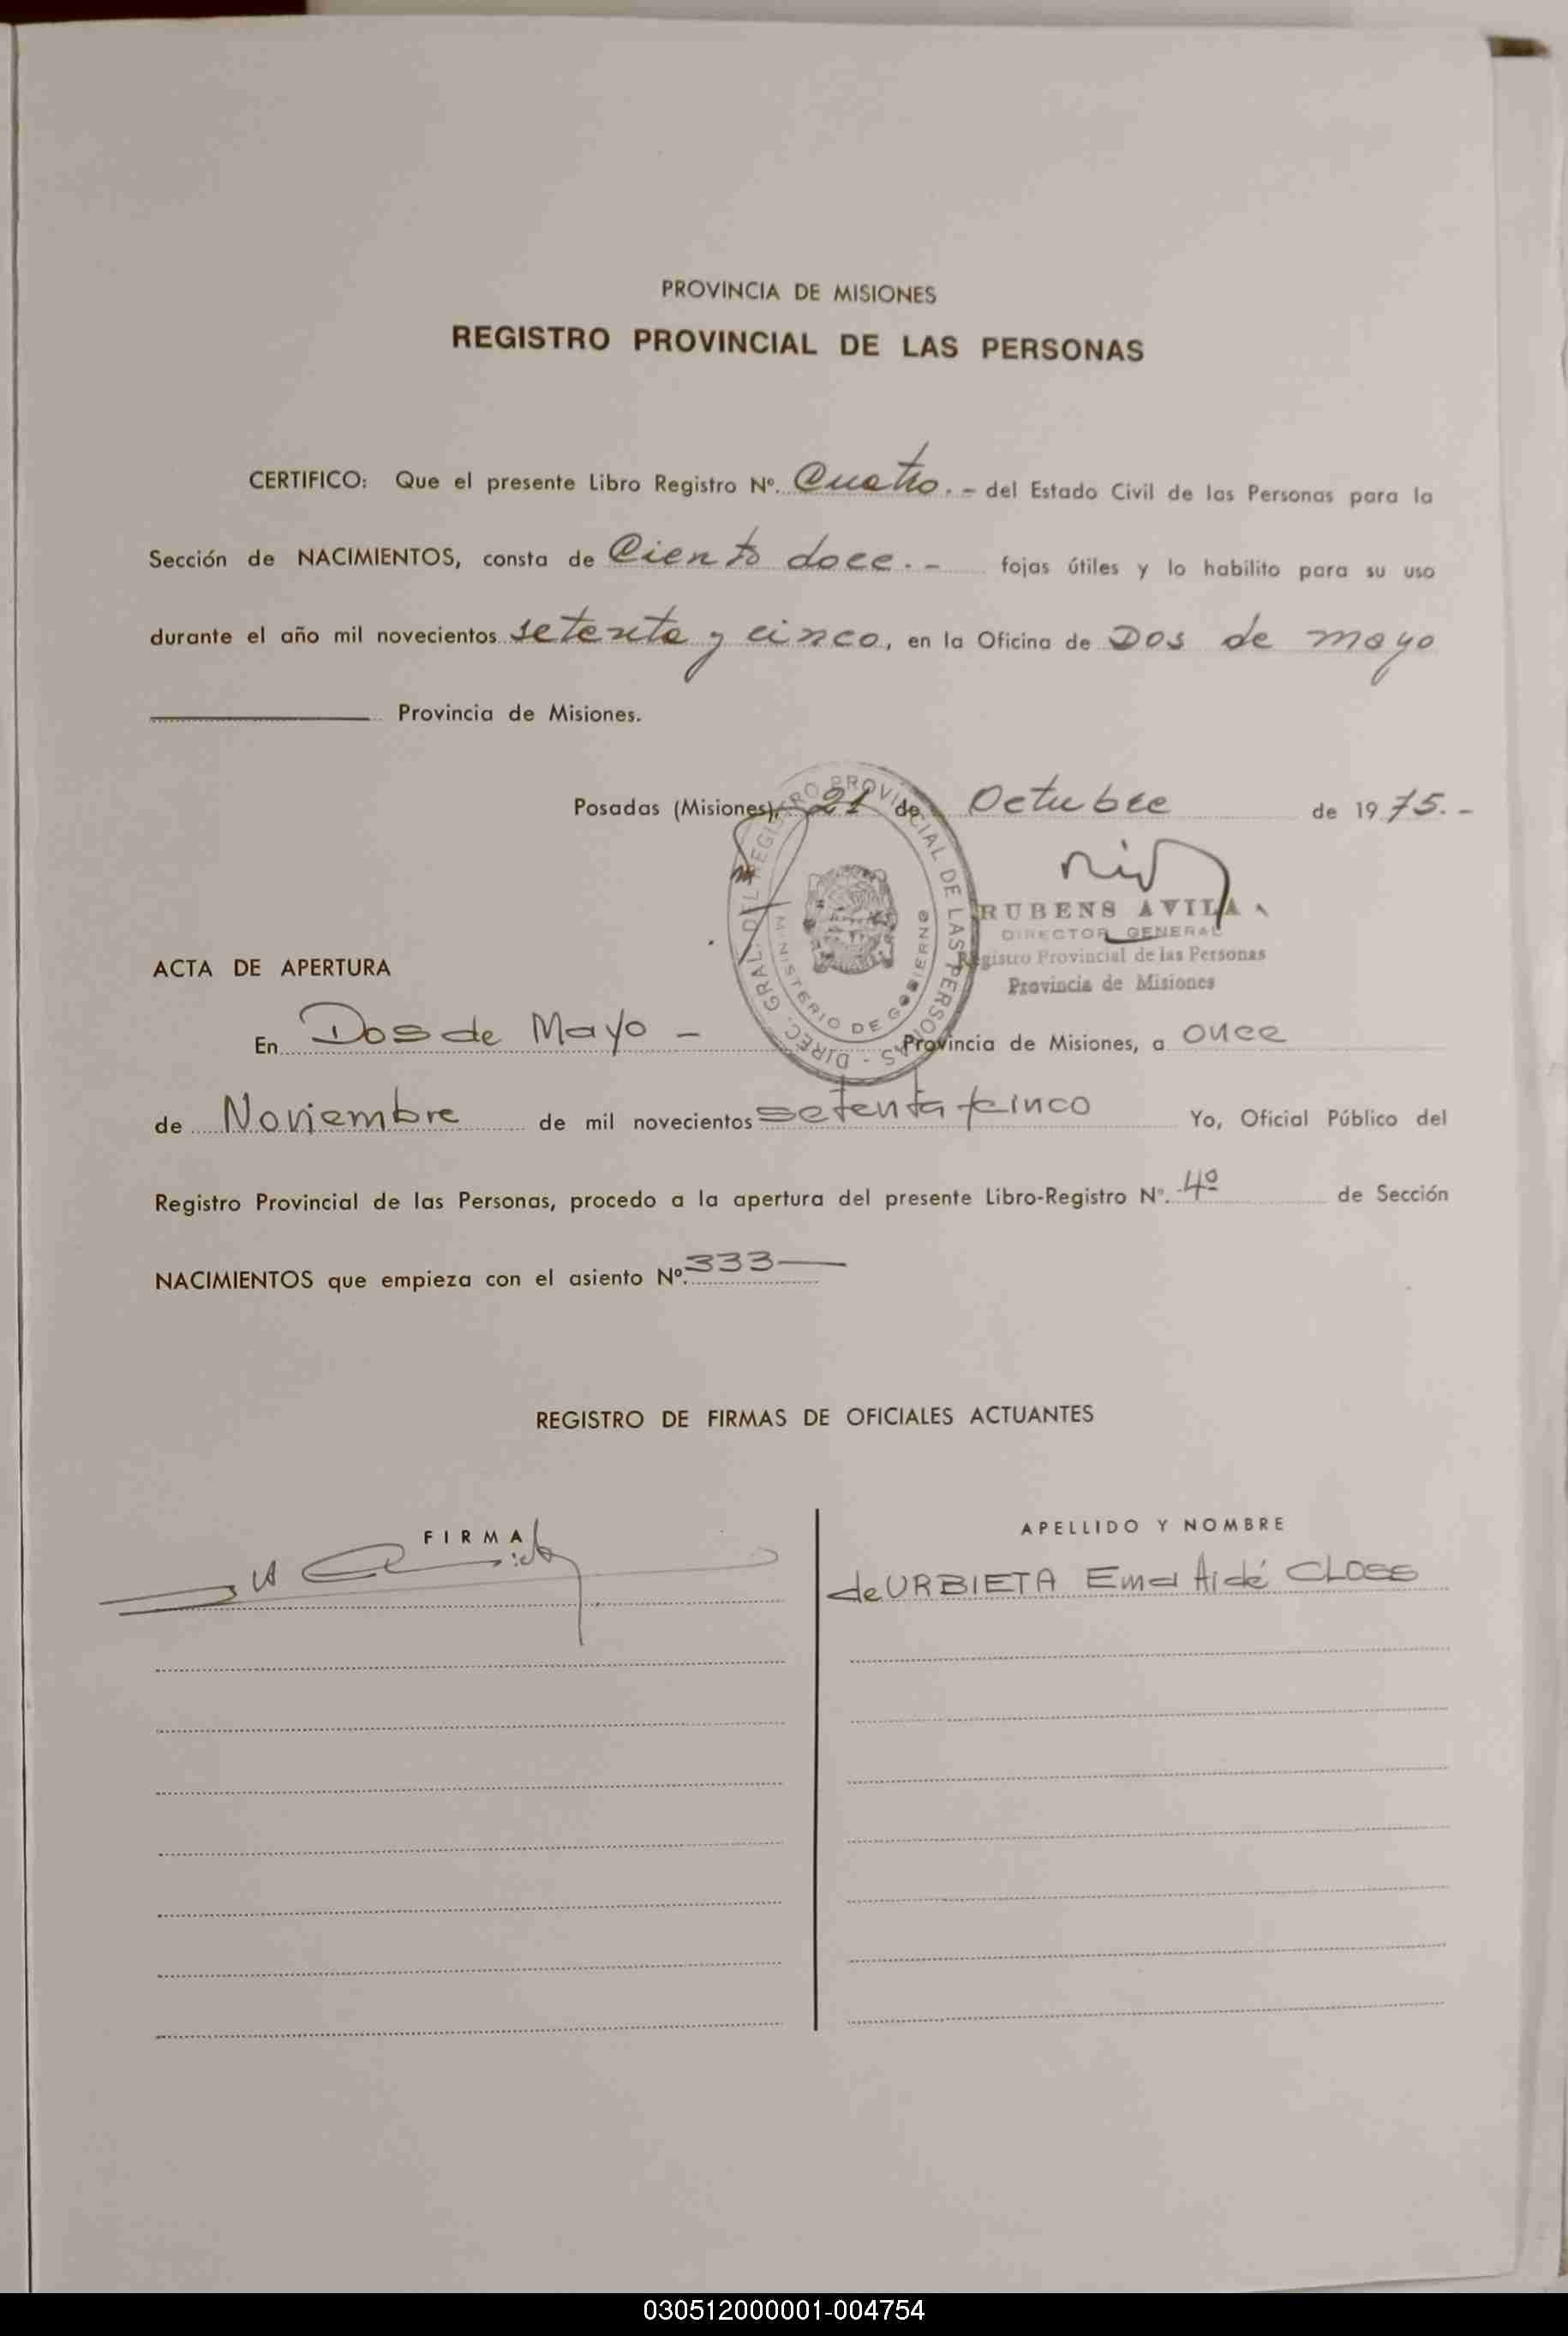 PROVINCIA DE MISIONES
REGISTRO PROVINCIAL DE LAS PERSONAS
CERTIFICO: Que el presente Libro Registro Nº. Cuatro. - del Estado Civil de las Personas para la
Sección de NACIMIENTOS, consta de Ciento doce. - fojas útiles y lo habilito para su uso
durante el año mil novecientos setenta y cinco, en la Oficina de Dos de mayo
Provincia de Misiones.
Posadas (Misiones), 21 de Octubre de 1975. -
DIREC. GRAL. DEL REGISTRO PROVINCIAL DE LAS PERSONAS -
MINISTERIO DE GOBIERNO
RUBENS AVILA
DIRECTOR GENERAL
Registro Provincial de las Personas
Provincia de Misiones
ACTA DE APERTURA
En Dos de Mayo - Provincia de Misiones, a once
de Noviembre de mil novecientos setenta y cinco Yo, Oficial Público del
Registro Provincial de las Personas, procedo a la apertura del presente Libro-Registro Nº. 4º de Sección
NACIMIENTOS que empieza con el asiento Nº. 333
REGISTRO DE FIRMAS DE OFICIALES ACTUANTES
FIRMA
APELLIDO Y NOMBRE
de URBIETA Ema Aidé CLOSS
030512000001-004754